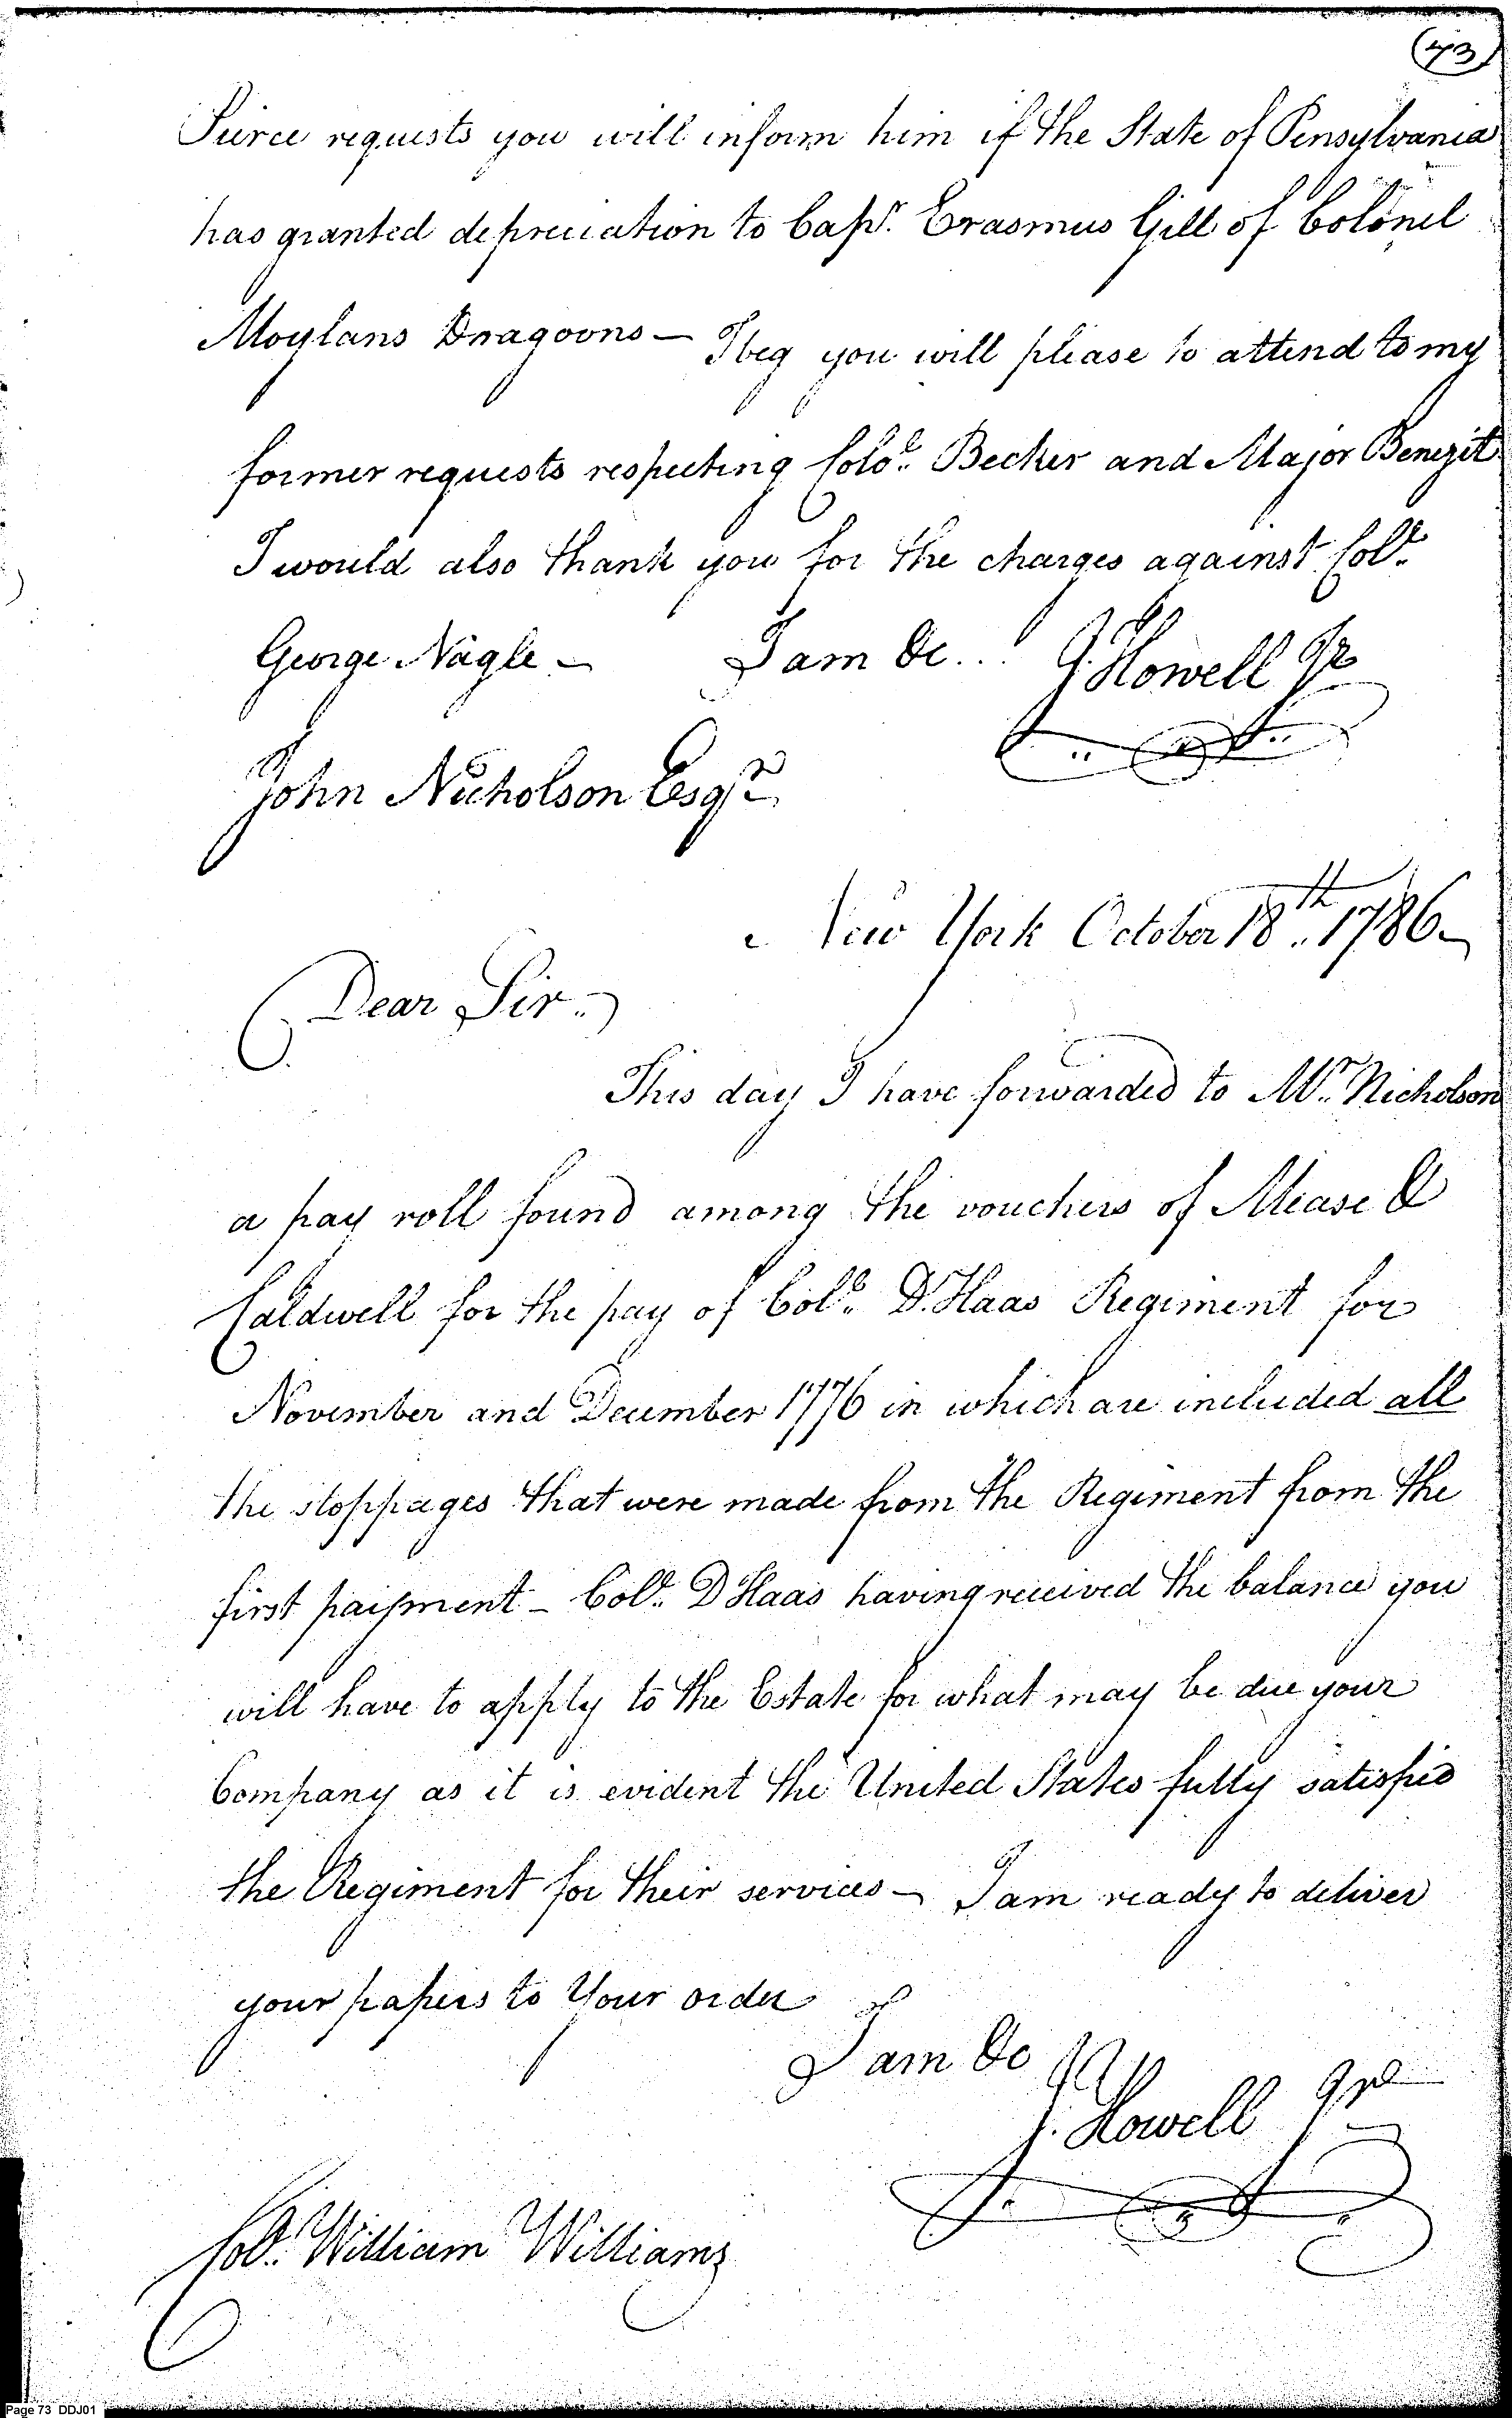 (73)
Pierce requests you will inform him if the State of Pensylvania
has granted depreciation to Capt. Erasmus Gill of Colonel
Moylans Dragoons — I beg you will please to attend to my
former requests respecting Colol. Becker and Major Benezit
I would also thank you for the charges against Coll.
George Nagle — I am &c... J. Howell Jr
John Nicholson Esqr.
New York October 18th. 1786 —
Dear Sir —
This day I have forwarded to Mr. Nicholson
a pay roll found among the vouchers of Mease &
Caldwell for the pay of Coll. D. Haas Regiment for
November and December 1776 in which are included all
the stoppages that were made from the Regiment from the
first paipment — Coll. D Haas having received the balance you
will have to apply to the Estate for what may be due your
Company as it is evident the United States fully satisfied
the Regiment for their services — I am ready to deliver
your papers to Your order
I am &c
J. Howell Jr
Coll. William Williams
Page 73 DDJ01